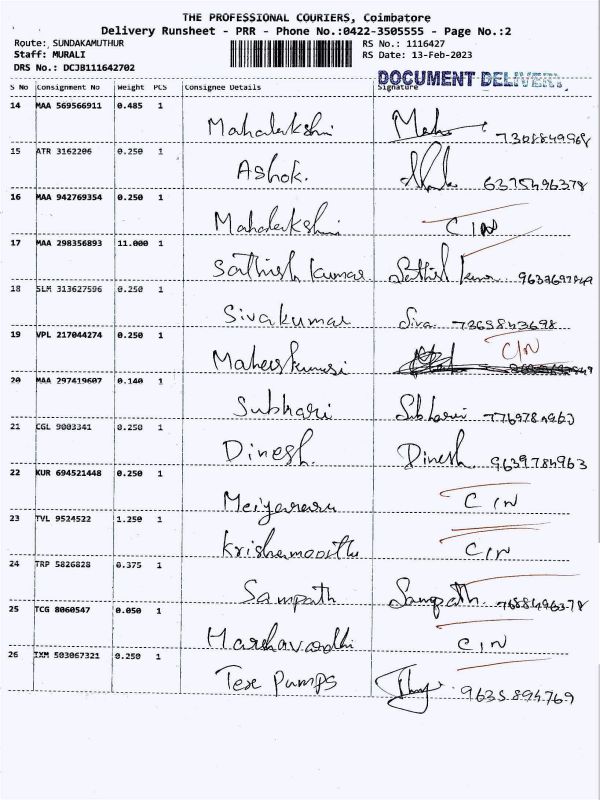 THE PROFESSIONAL COURIERS, Coimbatore
Delivery Runsheet - PRR - Phone No.:0422-3505555 - Page No.:2
Route: SUNDAKAMUTHUR RS No.: 1116427
Staff: MURALI RS Date: 13-Feb-2023
DRS No.: DCJB111642702
DOCUMENT DELIVERY
S No Consignment No Weight PCS Consignee Details Signature
14 MAA 569566911 0.485 1
Mahalakshmi Maha
15 ATR 3162206 0.250 1
Ashok. 6375496378
16 MAA 942769354 0.250 1
Mahalakshmi C IN
17 MAA 298356893 11.000 1
Sathish kumar Sathish kumar
18 SLM 313627596 0.250 1
Sivakumar Siva 7265843698
19 VPL 217044274 0.250 1
C/N
20 MAA 297419607 0.140 1
Subhari Subhari 7769784963
21 CGL 9003341 0.250 1
Dinesh. Dinesh 9639784963
22 KUR 694521448 0.250 1
C IN
23 TVL 9524522 1.250 1
C IN
24 TRP 5826828 0.375 1
Sampath Sampath 7658496378
25 TCG 8060547 0.050 1
Harshavardhi C IN
26 IXM 503067321 0.250 1
Texe Pumps 9635894769